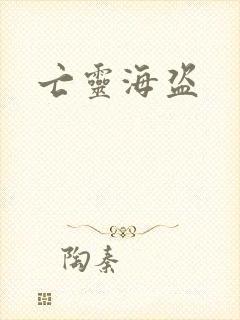 亡靈海盜
陶秦